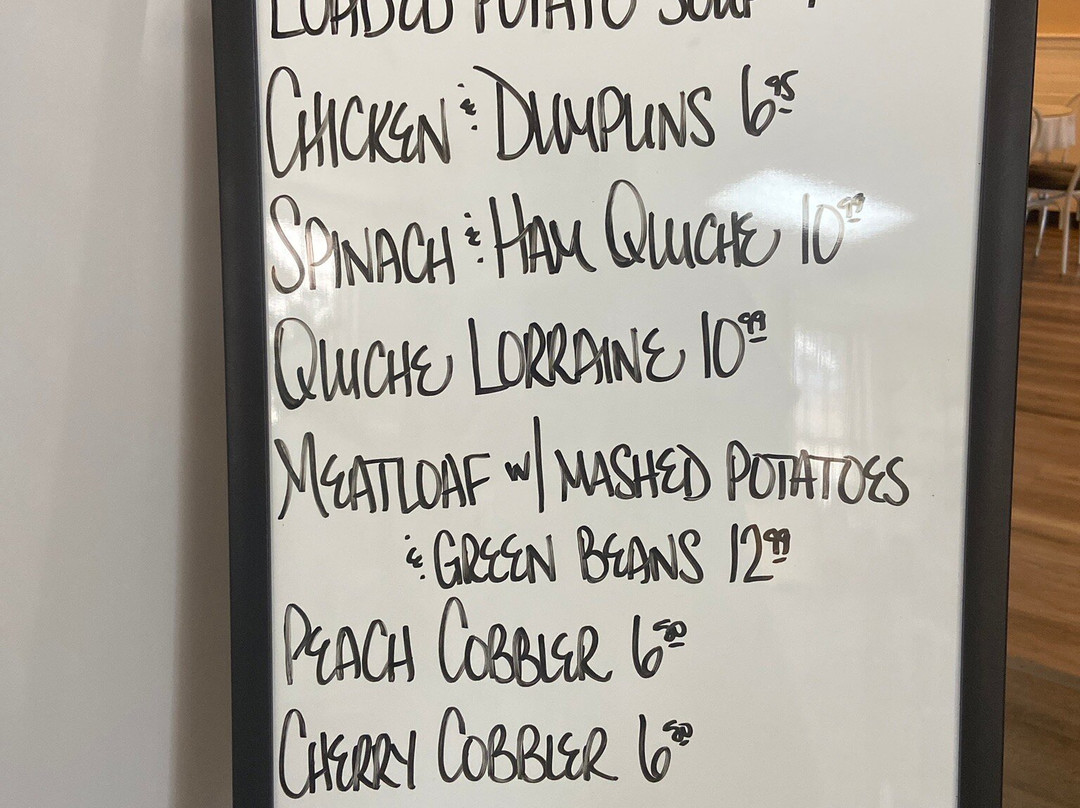 LOADED POTATO SOUP
CHICKEN & DUMPLINS 6.95
SPINACH & HAM QUICHE 10.99
QUICHE LORRAINE 10.99
MEATLOAF w/ MASHED POTATOES
& GREEN BEANS 12.99
PEACH COBBLER 6.50
CHERRY COBBLER 6.50